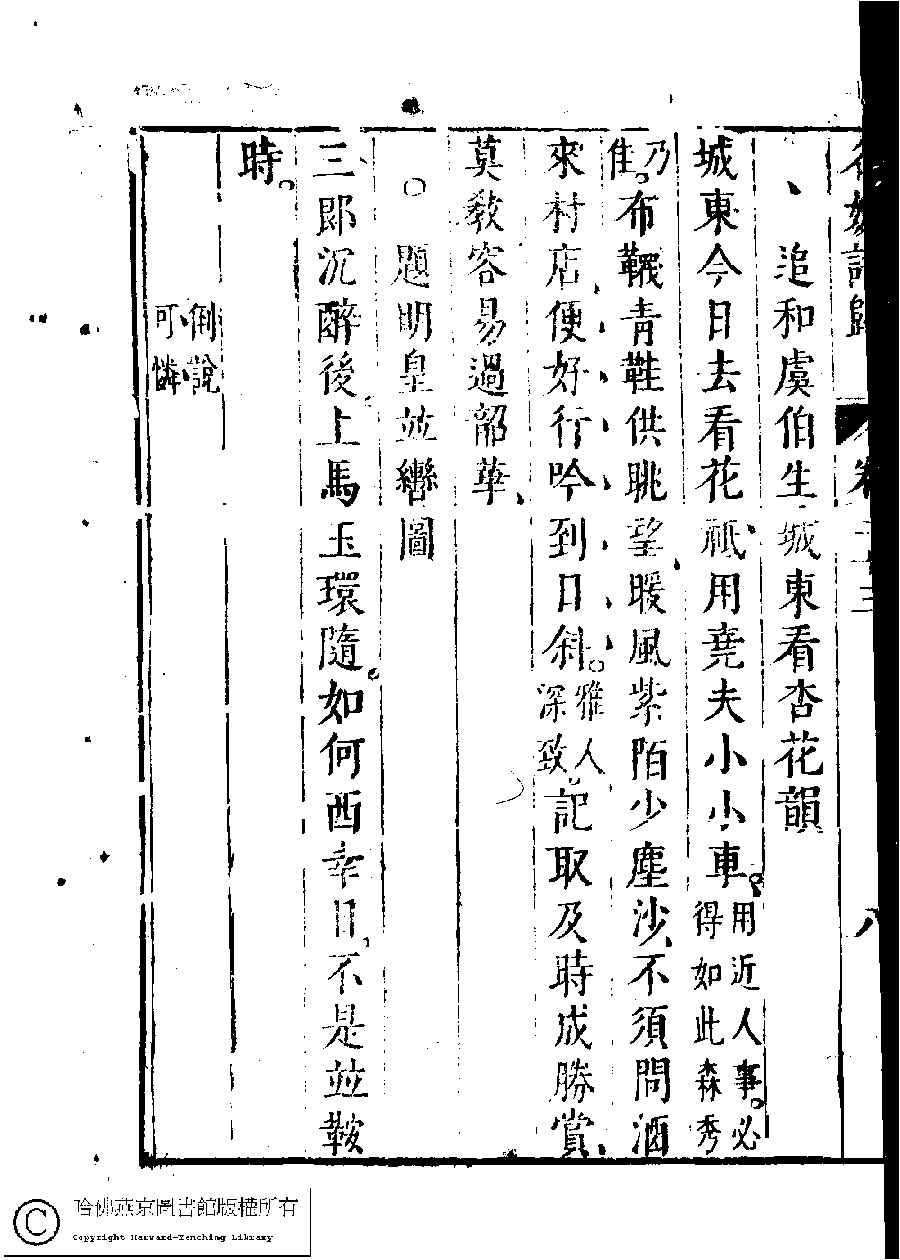 名媛詩歸
卷二十三
八
追和虞伯生城東看杏花韻
城東今日去看花祗用堯夫小小車用近人事必得如此森秀
乃佳布韈青鞵供眺望暖風紫陌少塵沙不須問酒
來村店便好行吟到日斜雅人深致記取及時成勝賞
莫敎容易過韶華
題明皇並轡圖
三郎沉醉後上馬玉環隨如何西幸日不是並鞍
時
倒說可憐
哈佛燕京圖書館版權所有
Copyright Harvard-Yenching Library